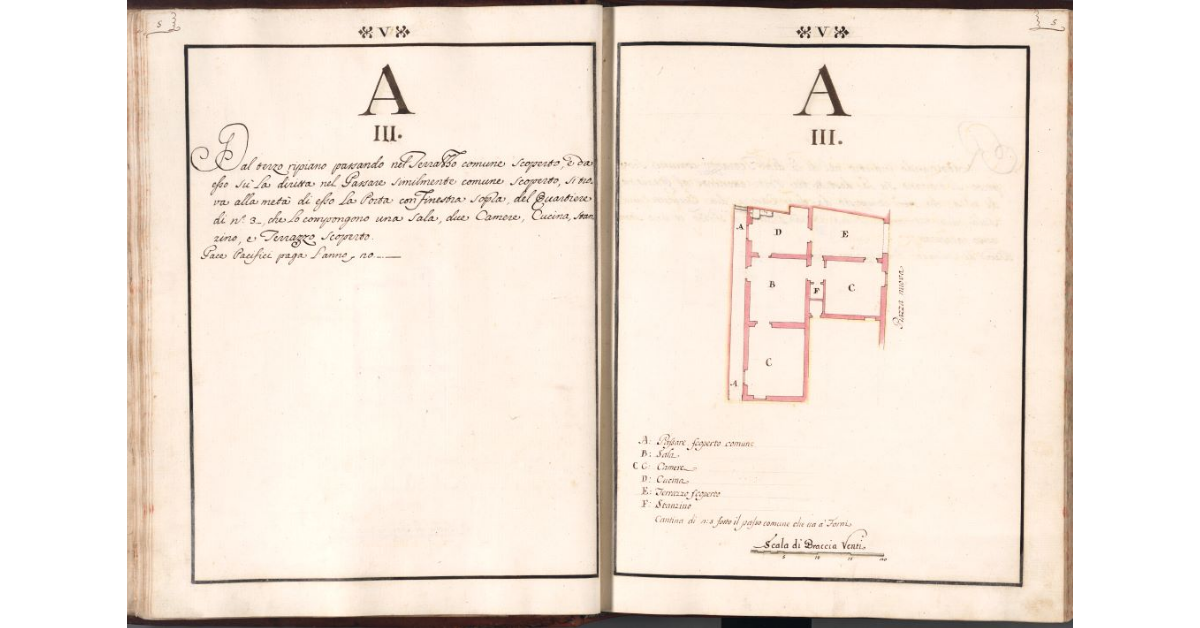 5
V
A
III.
Dal terzo ripiano passando nel Terrazzo comune scoperto, e da
esso sù la diritta nel Passare similmente comune scoperto, si tro-
va alla metà di esso la Porta con Finestra sopra, del Quartiere
di n.º 3. che lo compongono una Sala, due Camere, Cucina, Stan
zino, e Terrazzo scoperto.
Pace Pacifici paga l'anno, no.
5
V
A
III.
A
D
E
B
F
C
Piazza nuova
C
A
A: Passare scoperto comune
B: Sala
C C: Camere
D: Cucina
E: Terrazzo scoperto
F: Stanzino
Cantina di n: sotto il passo comune che va a' Forni
Scala di Braccia Venti
5 10 15 20